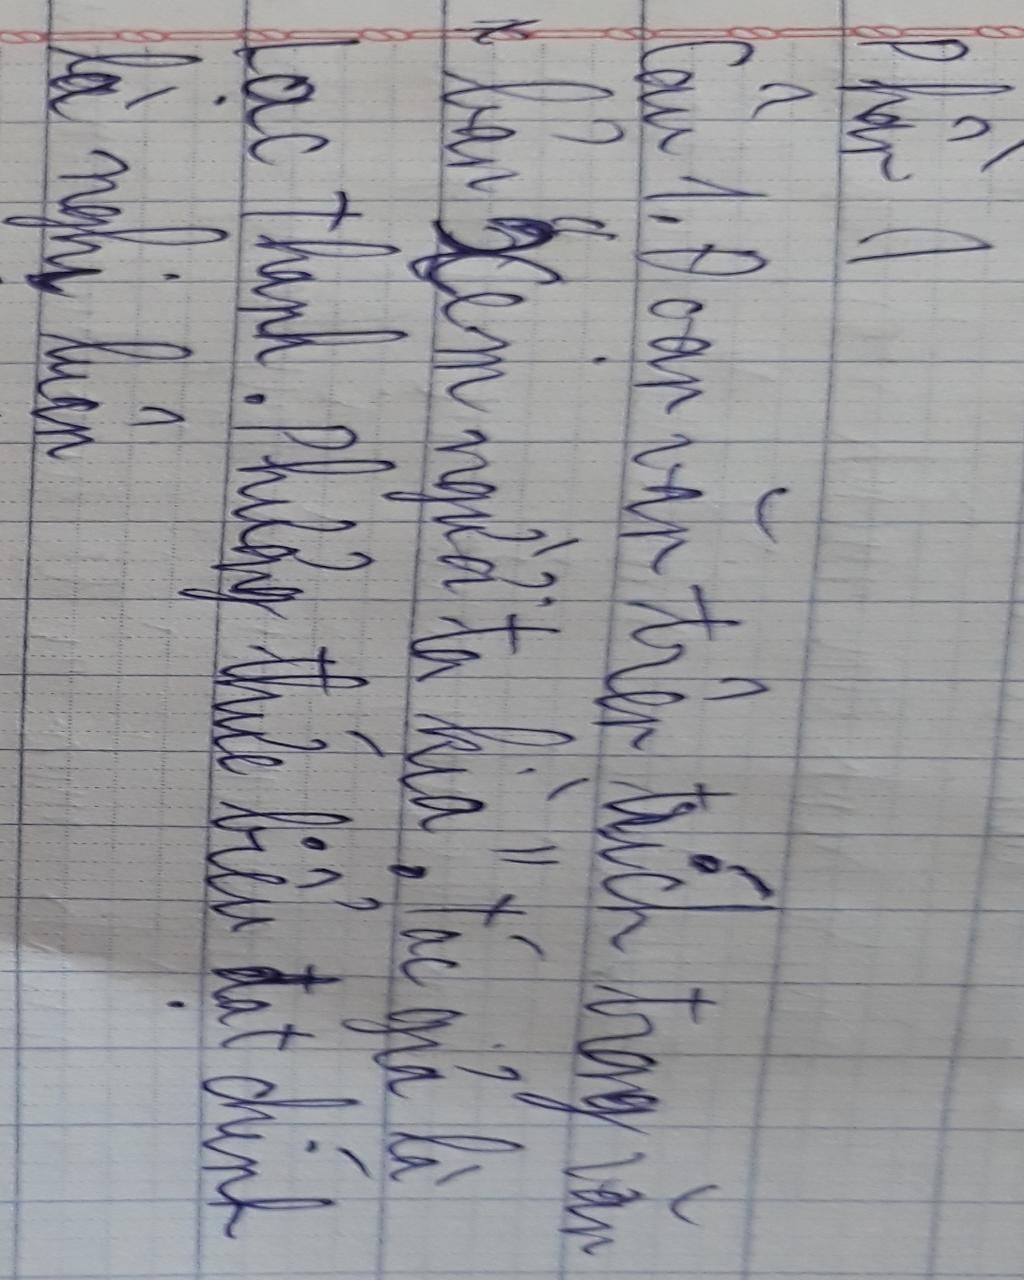 Phần I
Câu 1. Đoạn văn trên trích trong văn
bản "Xem người ta kìa". Tác giả là
Lạc Thanh. Phương thức biểu đạt chính
là nghị luận